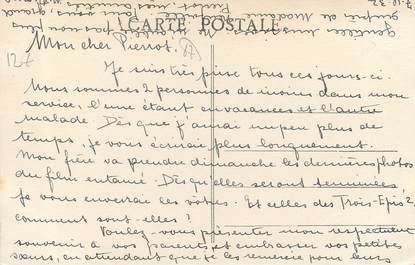 CARTE POSTALE
127
Mon cher Pierrot,
Je suis très prise tous ces jours-ci.
Nous sommes 2 personnes de moins dans mon
service, l'une étant en vacances et l'autre
malade. Dès que j'aurai un peu plus de
temps, je vous écrirai plus longuement.
Mon frère va prendre dimanche les dernières photos
du film entamé. Dès qu'elles seront terminées,
je vous enverrai les vôtres. Et celles des Trois-Epis ?,
comment sont-elles ?
Voulez-vous présenter mon respectueux
souvenir à vos parents et embrasser vos petites
sœurs, en attendant que je les remercie pour leurs
gentilles
auprès de Madame